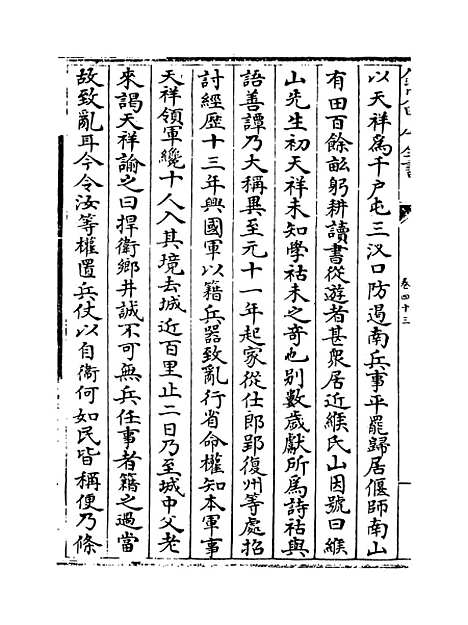 卷四十三
以天祥爲千户屯三汊口防遏南兵事平罷歸居偃師南山
有田百餘畝躬耕讀書從遊者甚衆居近緱氏山因號曰緱
山先生初天祥未知學祜未之奇也别數歲獻所爲詩祜與
語善譚乃大稱異至元十一年起家從仕郎郢復州等處招
討經歷十三年興國軍以籍兵器致亂行省命權知本軍事
天祥領軍纔十人入其境去城近百里止二日乃至城中父老
來謁天祥諭之曰捍衛鄉井誠不可無兵任事者籍之過當
故致亂耳今令汝等權置兵仗以自衛何如民皆稱便乃條